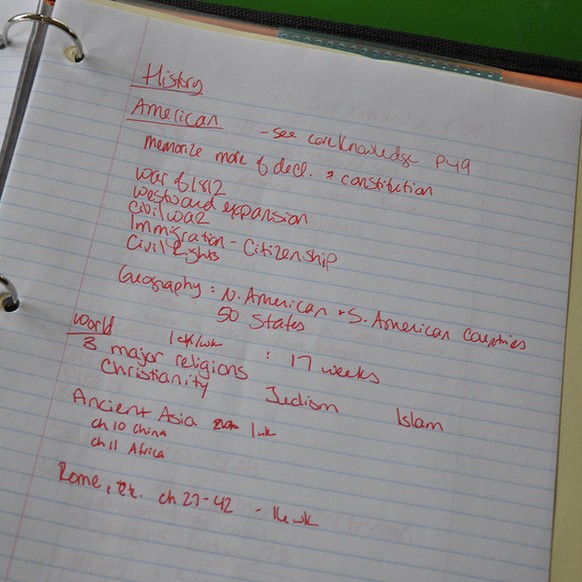 History
American
- see core knowledge p49
memorize more of decl. & constitution
War of 1812
westward expansion
Civil War
Immigration - Citizenship
Civil Rights
Geography : N. American + S. American Countries
50 States
World 1 ch/wk : 17 weeks
3 major religions
Christianity Judism Islam
Ancient Asia 1 wk
ch 10 China
ch 11 Africa
Rome, etc. ch 27-42 - 16 wk